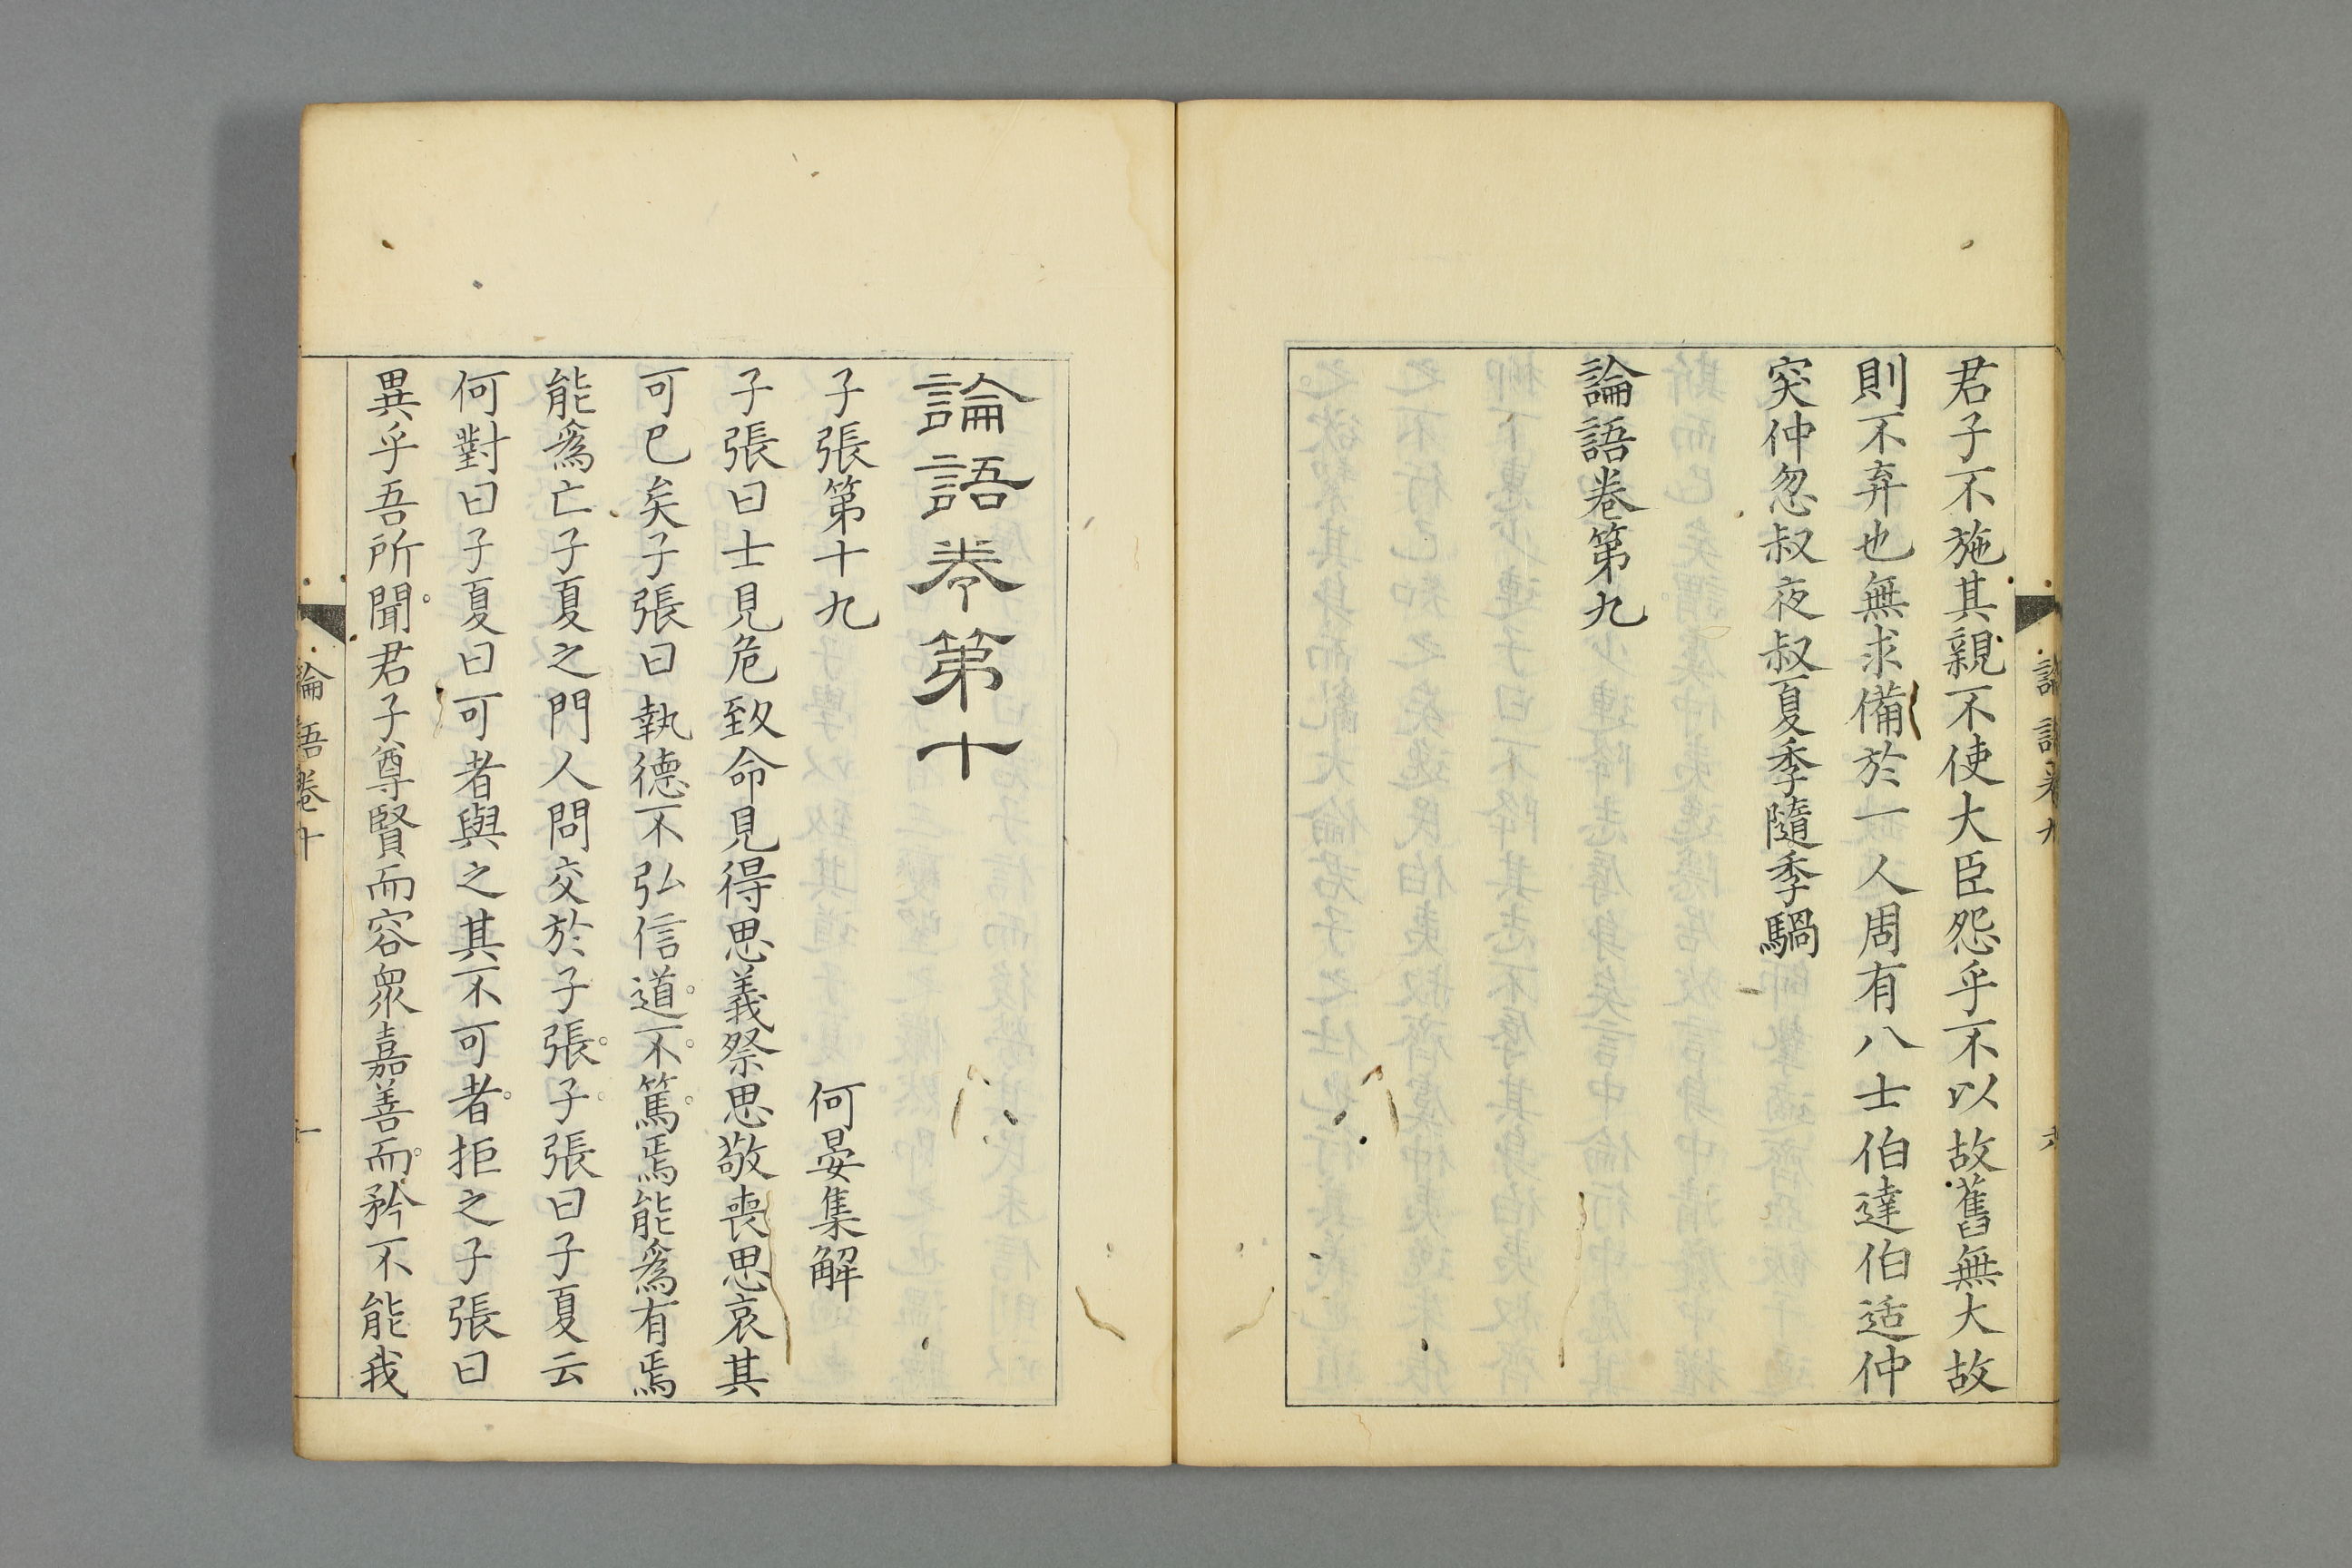 君子不施其親不使大臣怨乎不以故舊無大故
則不弃也無求備於一人周有八士伯達伯适仲
突仲忽叔夜叔夏季隨季騧
論語卷第九
論語卷第十
子張第十九 何晏集解
子張曰士見危致命見得思義祭思敬喪思哀其
可已矣子張曰執德不弘信道不篤焉能爲有焉
能爲亡子夏之門人問交於子張子張曰子夏云
何對曰子夏曰可者與之其不可者拒之子張曰
異乎吾所聞君子尊賢而容衆嘉善而矜不能我
論語卷十
一